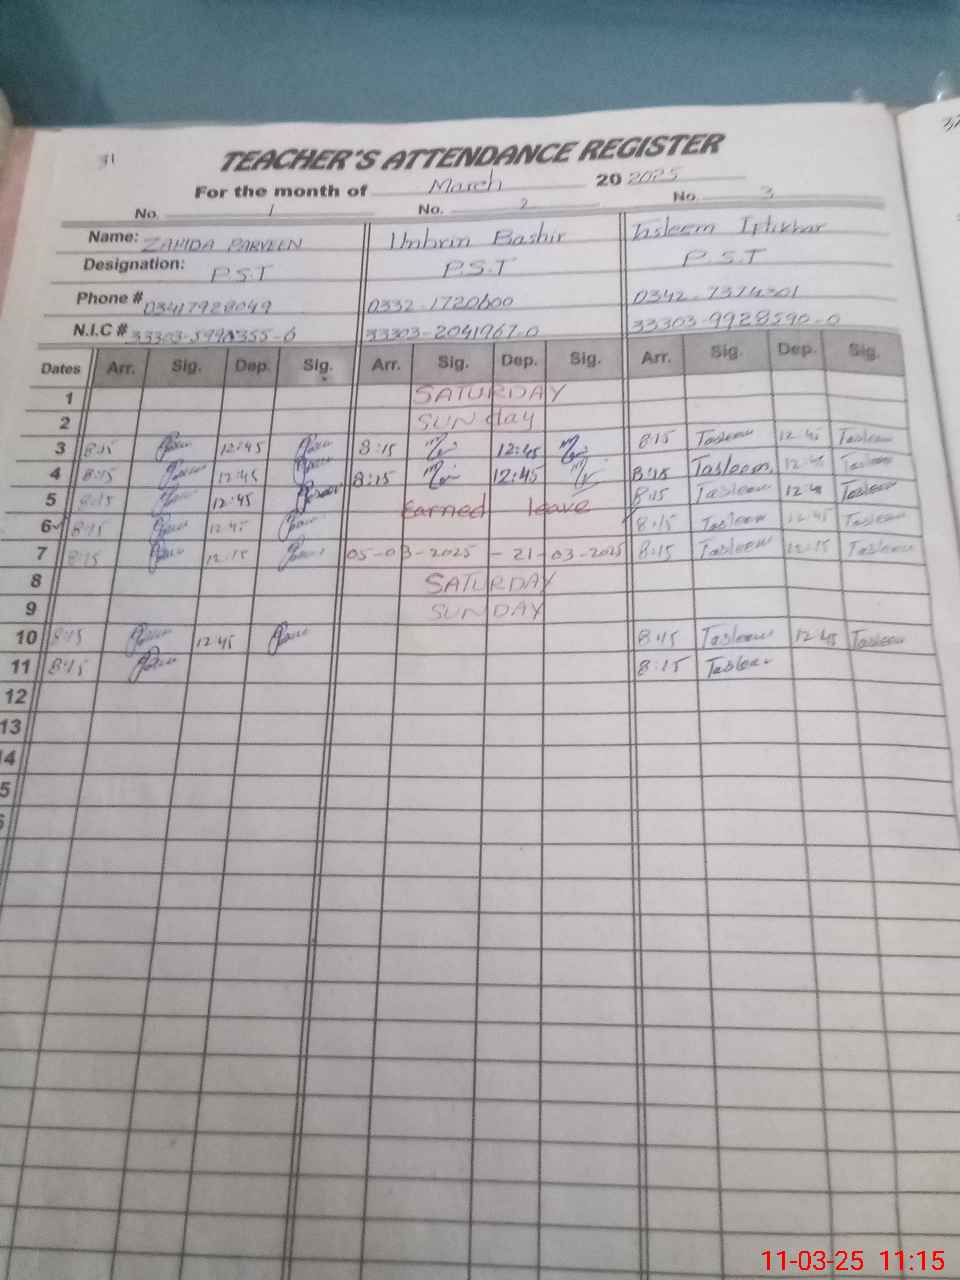 31
TEACHER'S ATTENDANCE REGISTER
For the month of March 20 2025
No. 1 No. 2 No. 3
Name: ZAHIDA PARVEEN Unbrin Bashir Tasleem Iftikhar
Designation: P.S.T P.S.T P.S.T
Phone # 03417928049 0332-1720600 0342-7374301
N.I.C # 33303-2041967-0 33303-9928590-0
Dates Arr. Sig. Dep. Sig. Arr. Sig. Dep. Sig. Arr. Sig. Dep. Sig.
1 SATURDAY
2 SUNday
3 8:15 12:45 8:15 12:45 8:15 Tasleem 12:45 Tasleem
4 8:15 12:45 8:15 12:45 8:15 Tasleem 12:45 Tasleem
5 8:15 12:45 Earned leave 8:15 Tasleem 12:45 Tasleem
6 8:15 12:45 8:15 Tasleem 12:45 Tasleem
7 8:15 12:15 05-03-2025 - 21-03-2025 8:15 Tasleem 12:15 Tasleem
8 SATURDAY
9 SUNDAY
10 8:15 12:45 8:15 Tasleem 12:45 Tasleem
11 8:15 8:15 Tasleem
12
13
14
5
11-03-25 11:15